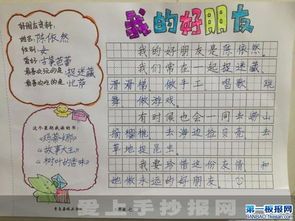 我的好朋友
好朋友资料
姓名:陈依然
性别:女
爱好:古筝芭蕾
最喜欢玩的是:捉迷藏
最喜欢吃的是:比萨
这个暑期我读的书:
《玛蒂娜》
《故事大王》
《树叶的香味》
我的好朋友是陈依然
我们常在一起捉迷藏
滑滑梯、做手工、唱歌、跳
舞、做游戏
有时候也会一同去崂山
捞蜜桃、去海边拾贝壳、去
草地捉昆虫
我要珍惜这份友情和
她做永远的好朋友
爱上手抄报网
第二板报网
SANBAO.TINSAT.COM